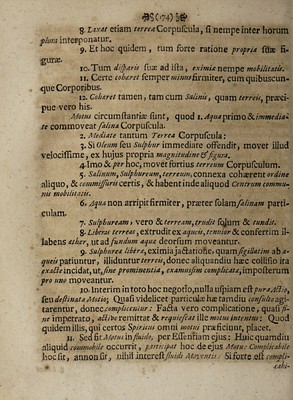 (74)
8. Laxat etiam terrea Corpuscula, si nempe inter horum
plura interponatur.
9. Et hoc quidem, tum forte ratione propria suæ fi-
guræ.
10. Tum disparis suæ ad ista, eximiæ nempe mobilitatis.
11. Certe cohæret semper minus firmiter, cum quibuscun-
que Corporibus.
12. Cohæret tamen, tam cum Salinis, quam terreis, præci-
pue vero his.
Motus circumstantiæ sunt, quod 1. Aqua primo & immedia-
te commoveat salina Corpuscula.
2. Mediate tantum Terrea Corpuscula:
3. Si Oleum seu Sulphur immediate offendit, movet illud
velocissime, ex hujus propria magnitudine & figura.
4. Imo & per hoc, movet fortius terreum Corpusculum.
5. Salinum, Sulphureum, terreum, connexa cohærent ordine
aliquo, & commissuris certis, & habent inde aliquod Centrum commu-
nis mobilitatis.
6. Aqua non arripit firmiter, præter solam salinam parti-
culam.
7. Sulphuream, vero & terream, trudit solum & tundit.
8. Liberas terreas, extrudit ex aqueis, tenuior & confertim il-
labens æther, ut ad fundum aquæ deorsum moveantur.
9. Sulphureæ liberæ, eximia jactatione quam sigillatim ab a-
queis patiuntur, illiduntur terreis, donec aliquandiu hæc collisio ita
exacte incidat, ut, sine prominentia, examussim complicata, imposterum
pro uno moveantur.
10. Interim in toto hoc negotio, nulla uspiam est pura Actio,
seu destinata Motio; Quasi videlicet particulæ hæ tamdiu consulto agi-
tarentur, donec complicentur: Facta vero complicatione, quasi fi-
ne impetrato, active remittat & requiescat ille motus intentus: Quod
quidem illis, qui certos Spiritus omni motui præficiunt, placet.
11. Sed sit Motus in fluido, per Essentiam ejus: Huic quamdiu
aliquid commobile occurrit, participat hoc de ejus Motu: Complicabile
hoc sit, ann on sit, nihil interest fluido Moventi: Si forte est compli-
cabi-